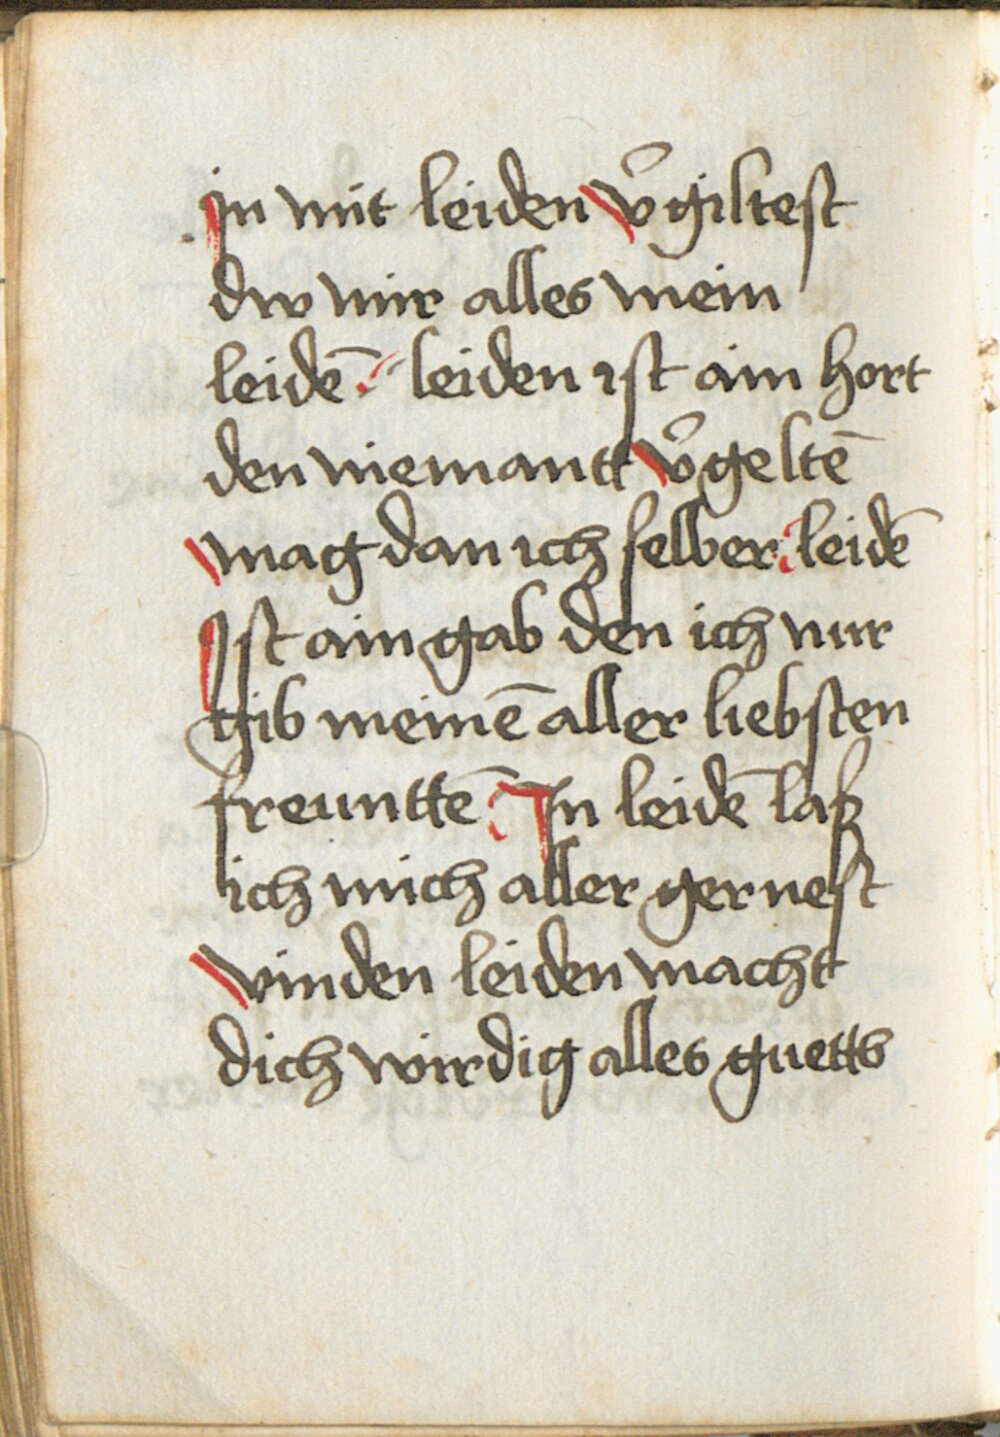 jn mit leiden v̄giltest
dw mir alles mein
leidē leiden ist ain hort
den niemantt v̄geltē
mag dan ich selber leidē
Jst ain gab den ich nur
gib meinē aller liebsten
freunttē Jn leidē laß
ich mich aller gernest
vinden leiden macht
dich wirdig alles guetts